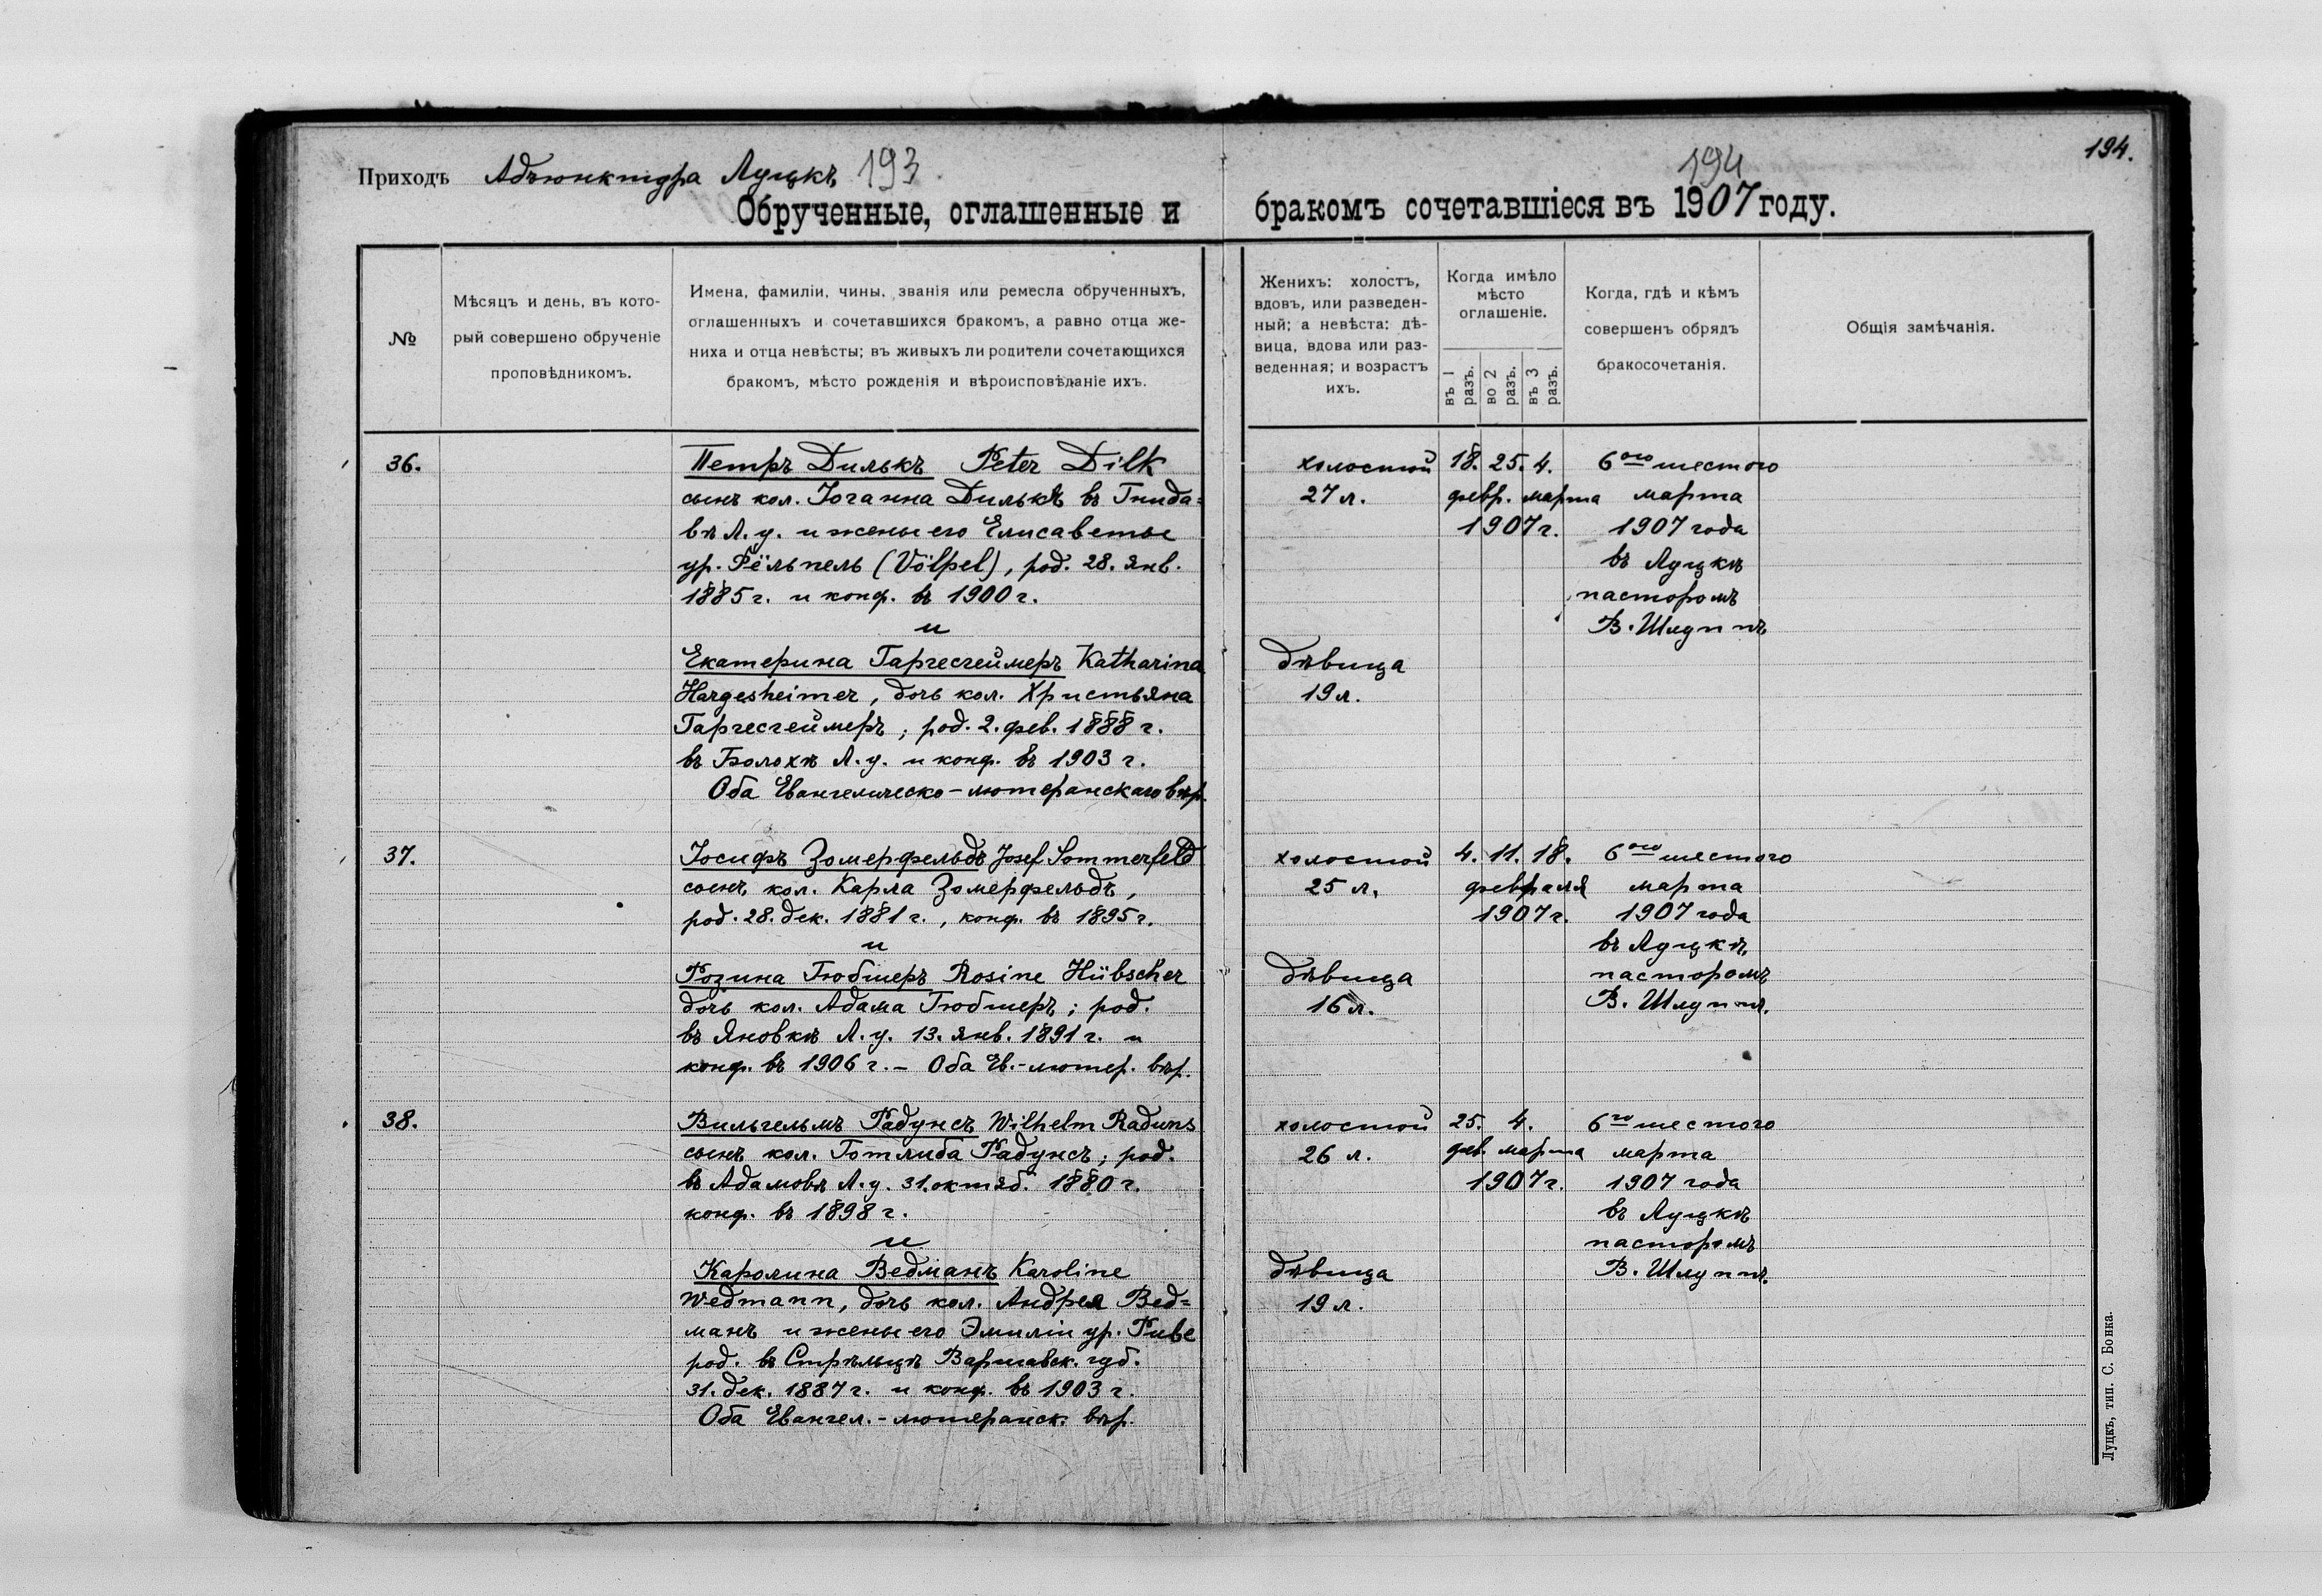 Приходъ Адъюнктура Луцкъ 193
194
194.
Обрученные, оглашенные и бракомъ сочетавшіеся въ 1907 году.
№
Мѣсяцъ и день, въ кото-
рый совершено обрученіе
проповѣдникомъ.
Имена, фамиліи, чины, званія или ремесла обрученныхъ,
оглашенныхъ и сочетавшихся бракомъ, а равно отца же-
ниха и отца невѣсты; въ живыхъ ли родители сочетающихся
бракомъ, мѣсто рожденія и вѣроисповѣданіе ихъ.
Женихъ: холостъ,
вдовъ, или разведен-
ный; а невѣста: дѣ-
вица, вдова или раз-
веденная; и возрастъ
ихъ.
Когда имѣло
мѣсто
оглашеніе.
въ 1 разъ.
во 2 разъ.
въ 3 разъ.
Когда, гдѣ и кѣмъ
совершенъ обрядъ
бракосочетанія.
Общія замѣчанія.
36.
Петръ Дилькъ Peter Dilk
сынъ кол. Іоганна Дилькъ въ Гнида=
вѣ Л. у. и жены его Елисаветы
ур. Фёльпель (Völpel), род. 28. янв.
1885 г. и конф. въ 1900 г.
и
Екатерина Гаргесгеймеръ Katharina
Hargesheimer, дочь кол. Христьяна
Гаргесгеймеръ; род. 2. фев. 1888 г.
въ Болохѣ Л. у. и конф. въ 1903 г.
Оба Евангелическо-лютеранскаго вѣр.
холостой
27 л.
дѣвица
19 л.
18. 25. 4.
февр. марта
1907 г.
6ого шестого
марта
1907 года
въ Луцкѣ
пасторомъ
В. Шлуппъ
37.
Іосифъ Зомерфельдъ Josef Sommerfeld
сынъ кол. Карла Зомерфельдъ,
род. 28. дек. 1881 г., конф. въ 1895 г.
и
Розина Гюбшеръ Rosine Hübscher
дочь кол. Адама Гюбшеръ; род.
въ Яновкѣ Л. у. 13. янв. 1891 г. и
конф. въ 1906 г. – Оба Ев.-лютер. вѣр.
холостой
25 л.
дѣвица
16 л.
4. 11. 18.
февраля
1907 г.
6ого шестого
марта
1907 года
въ Луцкѣ
пасторомъ
В. Шлуппъ.
38.
Вильгельмъ Радунсъ Wilhelm Raduns
сынъ кол. Готлиба Радунсъ; род.
въ Адамовѣ Л. у. 31. октяб. 1880 г.
конф. въ 1898 г.
и
Каролина Ведманъ Karoline
Wedmann, дочь кол. Андрея Вед=
манъ и жены его Эмиліи ур. Риве
род. въ Стрѣльцѣ Варшавск. губ.
31. дек. 1887 г. и конф. въ 1903 г.
Оба Евангел.-лютеранск. вѣр.
холостой
26 л.
дѣвица
19 л.
25. 4.
фев. марта
1907 г.
6го шестого
марта
1907 года
въ Луцкѣ
пасторомъ
В. Шлуппъ.
Луцкъ, тип. С. Бонка.